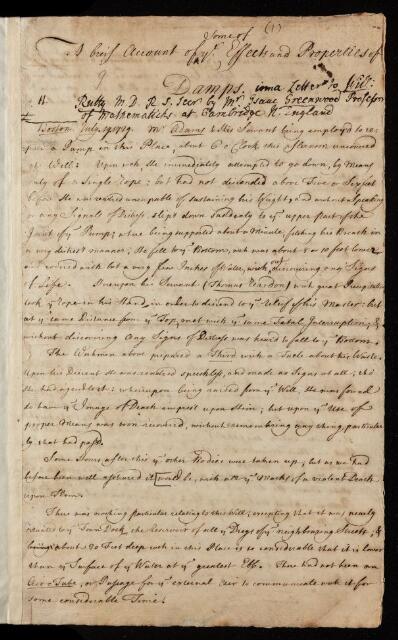 some of (1)
A brief Account of ye. Effects and Properties of
Damps. in a Letter to Will:
11 Rutty M. D. R. S. Secr: by Mr. Isaac Greenwood Professor
of Mathematicks at Cambridge N. England
Boston July 1729. Mr. Adams & His Servant being employ'd to re-
a Pump in this Place, about 6 o'Clock this Afternoon uncovered
ye Well: Upon wch He immediately attempted to go down, by Means
only of a Single Rope: but had not descended above Five or Six feet
before He was render'd uncapable of sustaining his Weight; and without Speaking
or any Signal of Distress, slipt down Suddenly to ye upper part of the
Joint of ye Pump; where being supported about a Minute, fetching his Breath in
a very distrest manner; He fell to ye Bottom, wch was about 8 or 10 foot lower
and covered with but a very few Inches of Water, without discovering any Signs
of Life. His Servant (Thomas ) with great Precipitation
took ye Rope in his Hand, in order to descend to ye Relief of his Master: but
at ye same Distance from ye Top, met with ye same Fatal Interruption; &
without discovering any Signs of Distress was heard to fall to ye Bottom.
The Workmen about prepared a Third with a Tacle about his Waste.
Upon his Descent He was rendered speechless, and made no Signs at all; tho
He had agreed to it: whereupon being raised from ye Well, He was found
to have ye Image of Death imprest upon Him; but upon ye Use of
proper Means was soon recovered, without remembring any thing particular
by that had past.
Some Hours after this ye other Bodies were taken up; but as we had
before been well assured it would be, with all ye Marks of a violent Death
upon Them.
There was nothing particular relating to this Well; excepting that it was nearly
situated to ye Town Dock, the Receiver of all ye Dregs of ye neighbouring Streets; &
about 30 Feet deep wch in this Place is so considerable that it is lower
than ye Surface of ye Water at ye greatest Ebb. There had not been an
Air-Tube, or Passage for ye external Air to communicate with it for
some considerable Time.